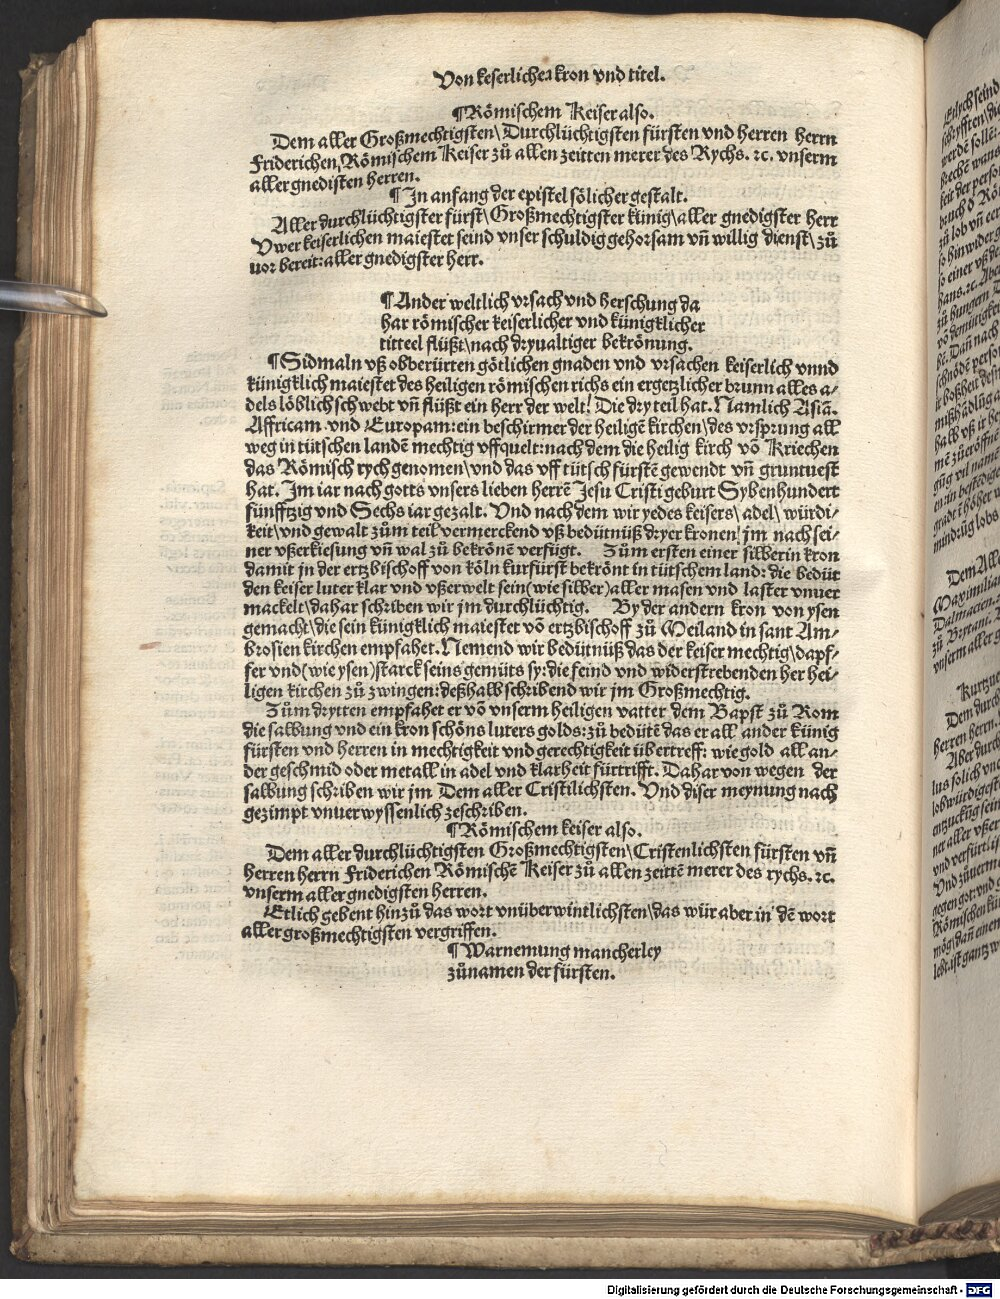 Von keserlicher kron vnd titel.
¶Rŏmischem Keiser also.
Dem aller Großmechtigsten\ Durchlüchtigsten fürsten vnd herren herrn
Friderichen, Rŏmischem Keiser zů allen zeitten merer des Rychs. ꝛc. vnserm
aller gnedisten herren.
¶In anfang der epistel sŏlicher gestalt.
Aller durchlüchtigster fürst\ Großmechtigster künig\ aller gnedigster herr
Vwer keiserlichen maiestet seind vnser schuldig gehorsam vñ willig dienst\ zů
uor bereit: aller gnedigster herr.
¶Ander weltlich vrsach vnd herschung da
har rŏmischer keiserlicher vnd künigklicher
titteel flüßt\ nach dryualtiger bekrŏnung.
¶Sidmaln vß obberürten gŏtlichen gnaden vnd vrsachen keiserlich vnnd
künigklich maiestet des heiligen rŏmischen richs ein ergetzlicher brunn alles a⸗
dels lŏblich schwebt vñ flüßt ein herr der welt! Die dry teil hat. Namlich Asiā.
Affricam vnd Europam: ein beschirmer der heiligē kirchen\ des vrsprung all
weg in tütschen landē mechtig vffquelt: nach dem die heilig kirch võ Kriechen
das Rŏmisch rych genomen\ vnd das vff tütsch fürstē gewendt vñ gruntuest
hat. Im iar nach gotts vnsers lieben herrē Jesu Cristi geburt Sybenhundert
fünfftzig vnd Sechs iar gezalt. Vnd nach dem wir yedes keisers\ adel\ würdi⸗
keit\ vnd gewalt zům teil vermerckend vß bedütnüß dryer kronen! jm nach sei⸗
ner vßerkiesung vñ wal zů bekrŏnē verfügt. Zům ersten einer silberin kron
damit jn der ertzbischoff von kŏln kurfürst bekrŏnt in tütschem land: die bedüt
den keiser luter klar vnd vßerwelt sein (wie silber) aller masen vnd laster vnuer
mackelt\ dahar schriben wir jm durchlüchtig. By der andern kron von ysen
gemacht\ die sein künigklich maiestet võ ertzbischoff zů Meiland in sant Am⸗
brosien kirchen empfahet. Nemend wir bedütnüß das der keiser mechtig\ dapf⸗
fer vnd (wie ysen) starck seins gemüts sy: die feind vnd widerstrebenden her hei⸗
ligen kirchen zů zwingen: deßhalb schribend wir jm Großmechtig.
Zům drytten empfahet er võ vnserm heiligen vatter dem Bapst zů Rom
die salbung vnd ein kron schŏns luters golds: zů bedütē das er all ander künig
fürsten vnd herren in mechtigkeit vnd gerechtigkeit übertreff: wie gold all an⸗
der geschmid oder metall in adel vnd klarheit fürtrifft. Dahar von wegen der
salbung schriben wir jm Dem aller Cristilichsten. Vnd diser meynung nach
gezimpt vnuerwyssenlich zeschriben.
¶Rŏmischem keiser also.
Dem aller durchlüchtigsten Großmechtigsten\ Cristenlichsten fürsten vñ
herren herrn Friderichen Rŏmischē Keiser zů allen zeittē merer des rychs. ꝛc.
vnserm aller gnedigsten herren.
Etlich gebent hinzů das wort vnüberwintlichsten\ das wür aber in dē wort
aller großmechtigsten vergriffen.
¶Warnemung mancherley
zůnamen der fürsten.
Digitalisierung gefördert durch die Deutsche Forschungsgemeinschaft - DFG